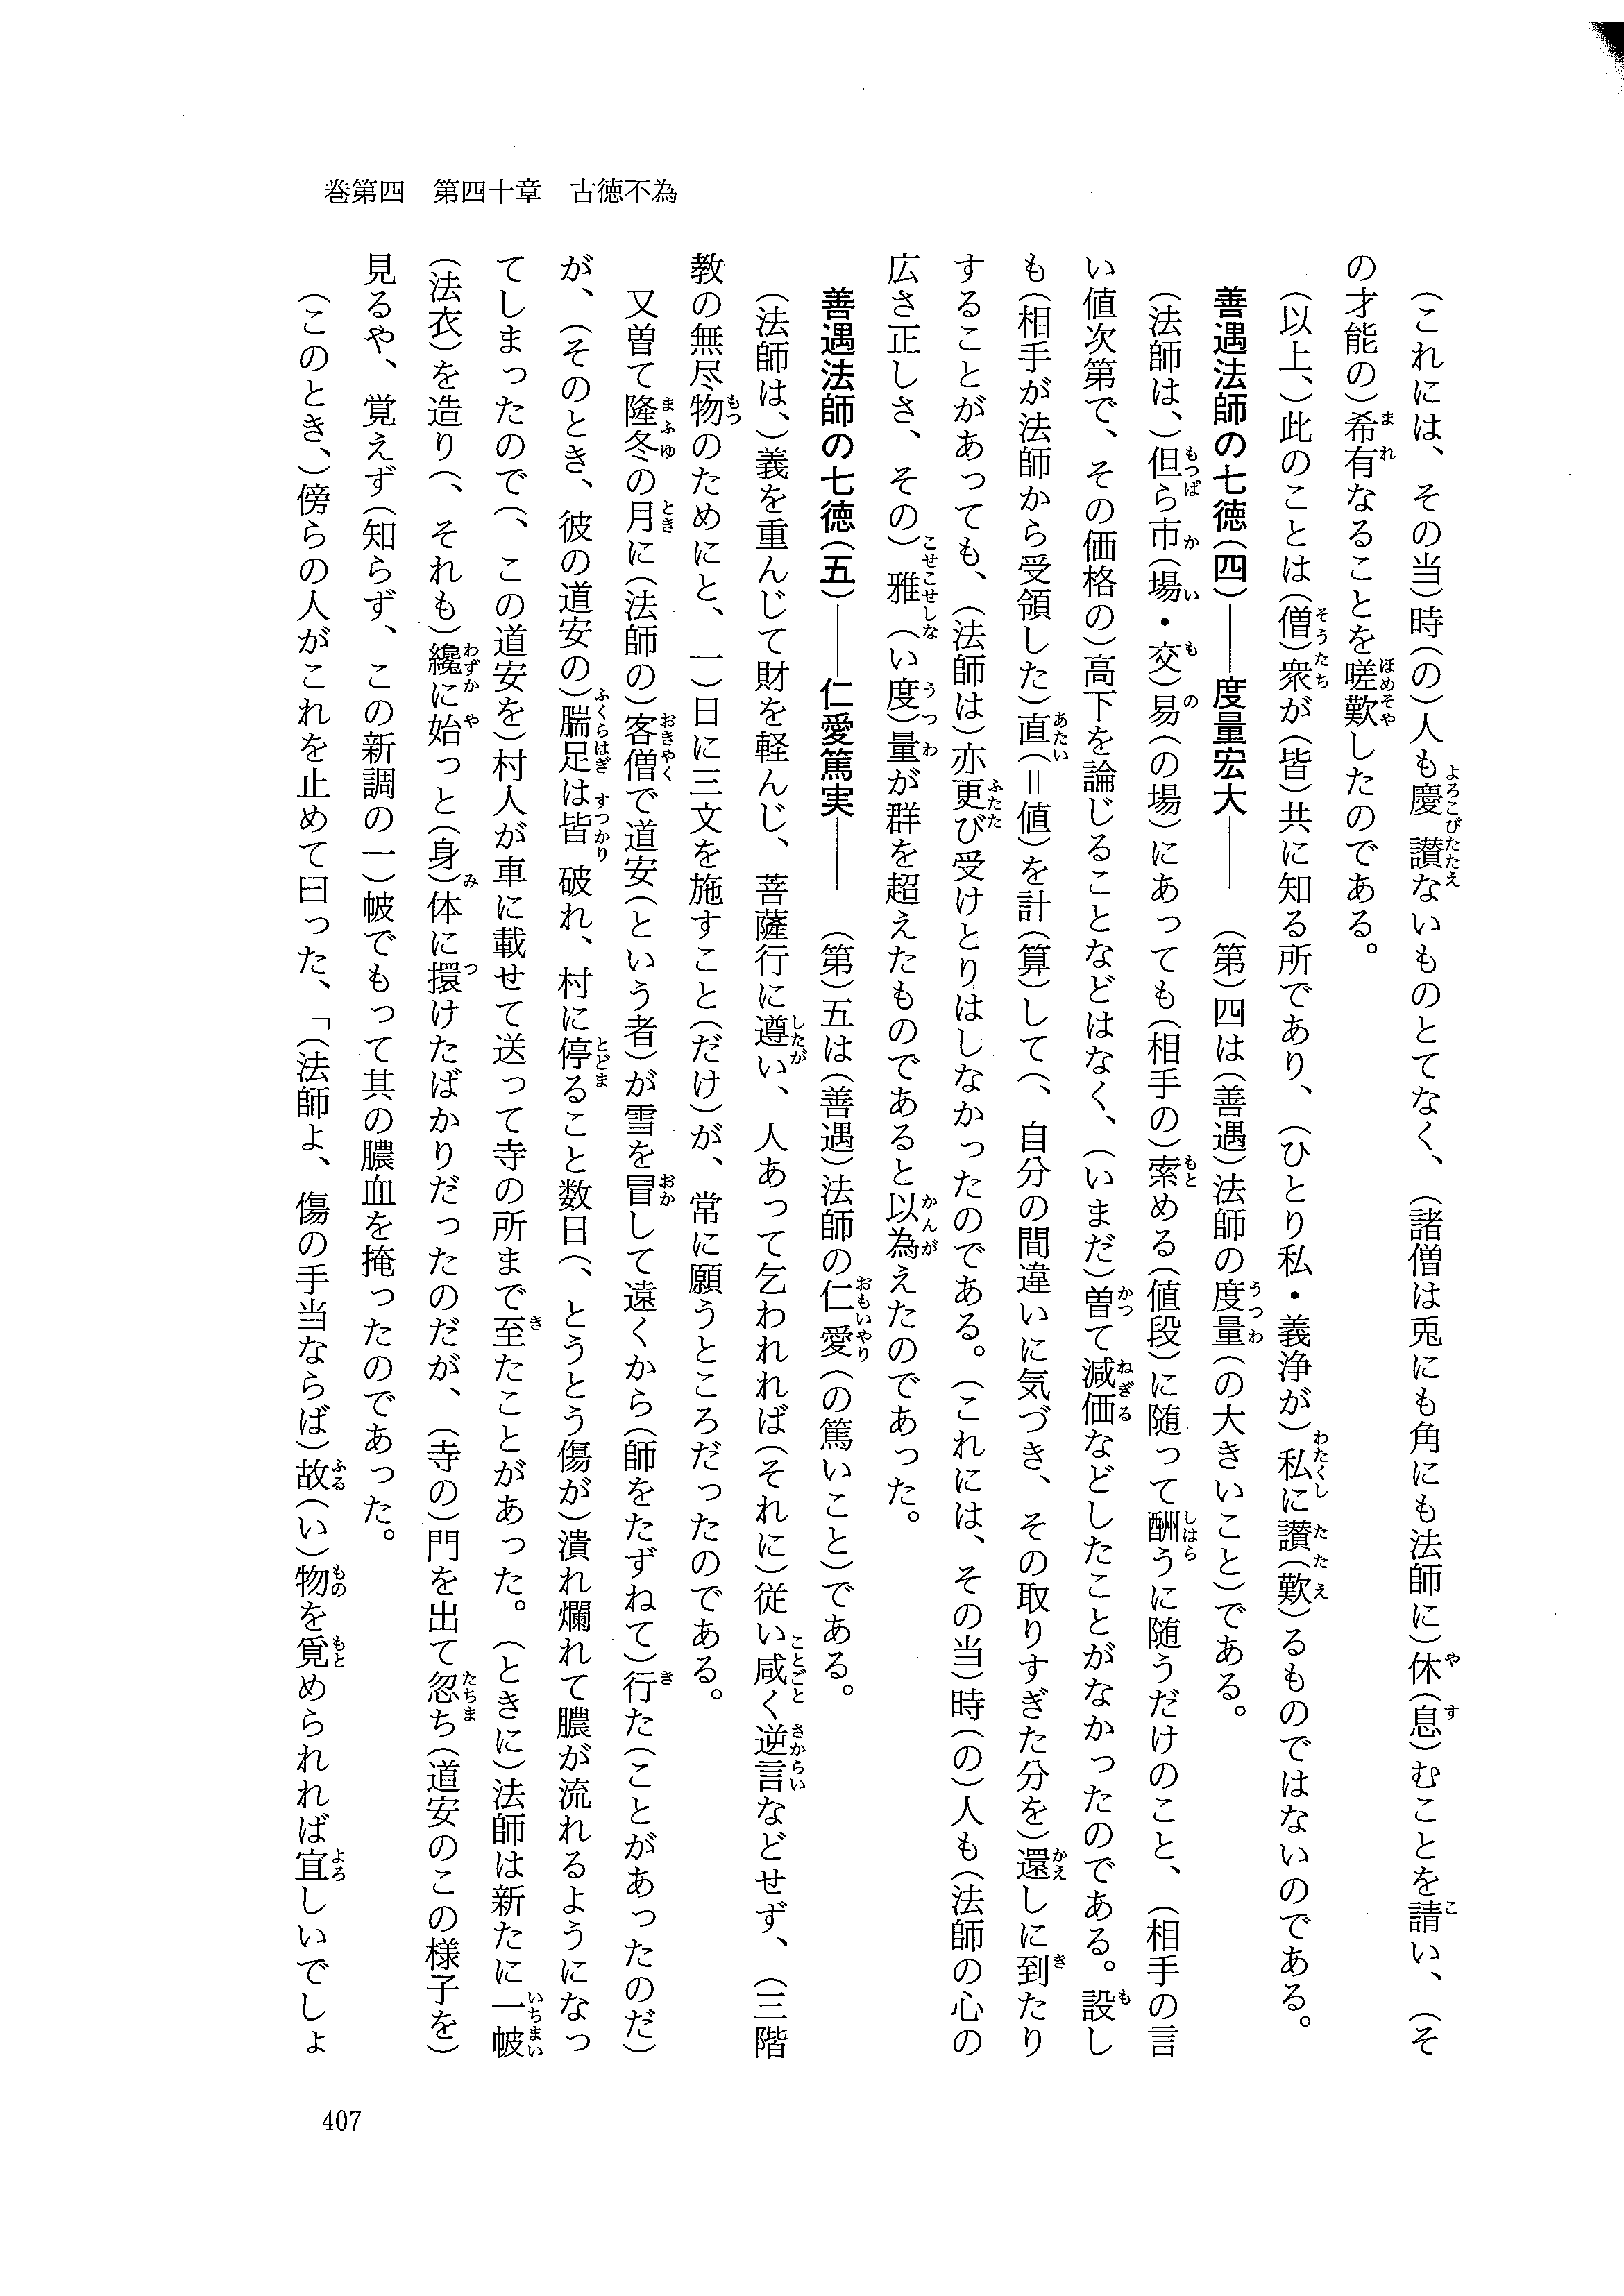 巻第四　第四十章　古徳不為
（これには、その当）時（の）人も慶讃ないものとてなく、（諸僧は兎にも角にも法師に）休（息）むことを請い、（そ
の才能の）希有なることを嗟歎したのである。
（以上、）此のことは（僧）衆が（皆）共に知る所であり、（ひとり私・義浄が）私に讃（歎）るものではないのである。
善遇法師の七徳（四）――度量宏大――　（第）四は（善遇）法師の度量（の大きいこと）である。
（法師は、）但ら市（場・交）易（の場）にあっても（相手の）索める（値段）に随って酬うに随うだけのこと、（相手の言
い値次第で、その価格の）高下を論じることなどはなく、（いまだ）曽て減価などしたことがなかったのである。設し
も（相手が法師から受領した）直（＝値）を計（算）して（、自分の間違いに気づき、その取りすぎた分を）還しに到たり
することがあっても、（法師は）亦更び受けとりはしなかったのである。（これには、その当）時（の）人も（法師の心の
広さ正しさ、その）雅（い度）量が群を超えたものであると以為えたのであった。
善遇法師の七徳（五）――仁愛篤実――　（第）五は（善遇）法師の仁愛（の篤いこと）である。
（法師は、）義を重んじて財を軽んじ、菩薩行に遵い、人あって乞われれば（それに）従い咸く逆言などせず、（三階
教の無尽物のためにと、一）日に三文を施すこと（だけ）が、常に願うところだったのである。
又曽て隆冬の月に（法師の）客僧で道安（という者）が雪を冒して遠くから（師をたずねて）行た（ことがあったのだ）
が、（そのとき、彼の道安の）腨足は皆破れ、村に停ること数日（、とうとう傷が）潰れ爛れて膿が流れるようになっ
てしまったので（、この道安を）村人が車に載せて送って寺の所まで至たことがあった。（ときに）法師は新たに一帔
（法衣）を造り（、それも）纔に始っと（身）体に擐けたばかりだったのだが、（寺の）門を出て忽ち（道安のこの様子を）
見るや、覚えず（知らず、この新調の一）帔でもって其の膿血を掩ったのであった。
（このとき、）傍らの人がこれを止めて曰った、「（法師よ、傷の手当ならば）故（い）物を覓められれば宜しいでしょ
407